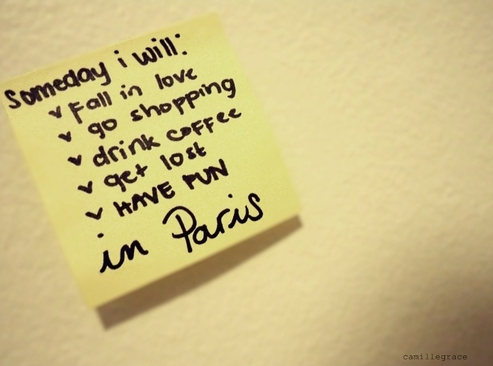 someday i will:
✓ fall in love
✓ go shopping
✓ drink coffee
✓ get lost
✓ HAVE FUN
in Paris
camillegrace